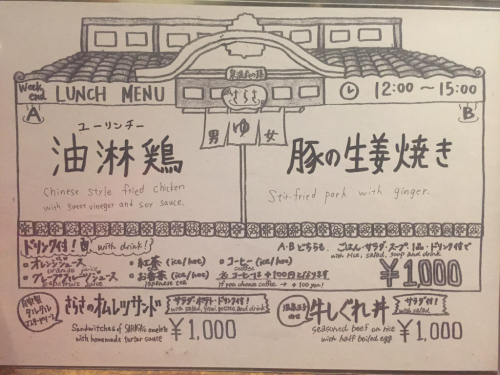 Week end LUNCH MENU
さらさ
12:00〜15:00
A
B
男 ゆ 女
ユーリンチー
油淋鶏
Chinese style fried chicken
with sweet vinegar and soy sauce.
豚の生姜焼き
Stir-fried pork with ginger.
ドリンク付! with drink!
・オレンジジュース
orange juice
・グレープフルーツジュース
grapefruit juice
・紅茶 (ice/hot)
tea
・お番茶 (ice/hot)
japanese tea
・コーヒー (ice/hot)
コーヒーは+100円となります
if you choose coffee → + 100 yen!
A・Bどちらも、ごはん・サラダ・スープ1品・ドリンク付で
with rice, salad, soup and drink
¥1,000
自家製タルタル
さらさのオムレツサンド
サラダ・ポテト・ドリンク付!
with salad, fried potato and drink
Sandwiches of SARASA omelete
with homemade tartar sauce
¥1,000
温泉玉子のせ
牛しぐれ丼
サラダ付!
with salad
seasoned beef on rice
with half boiled egg
¥1,000